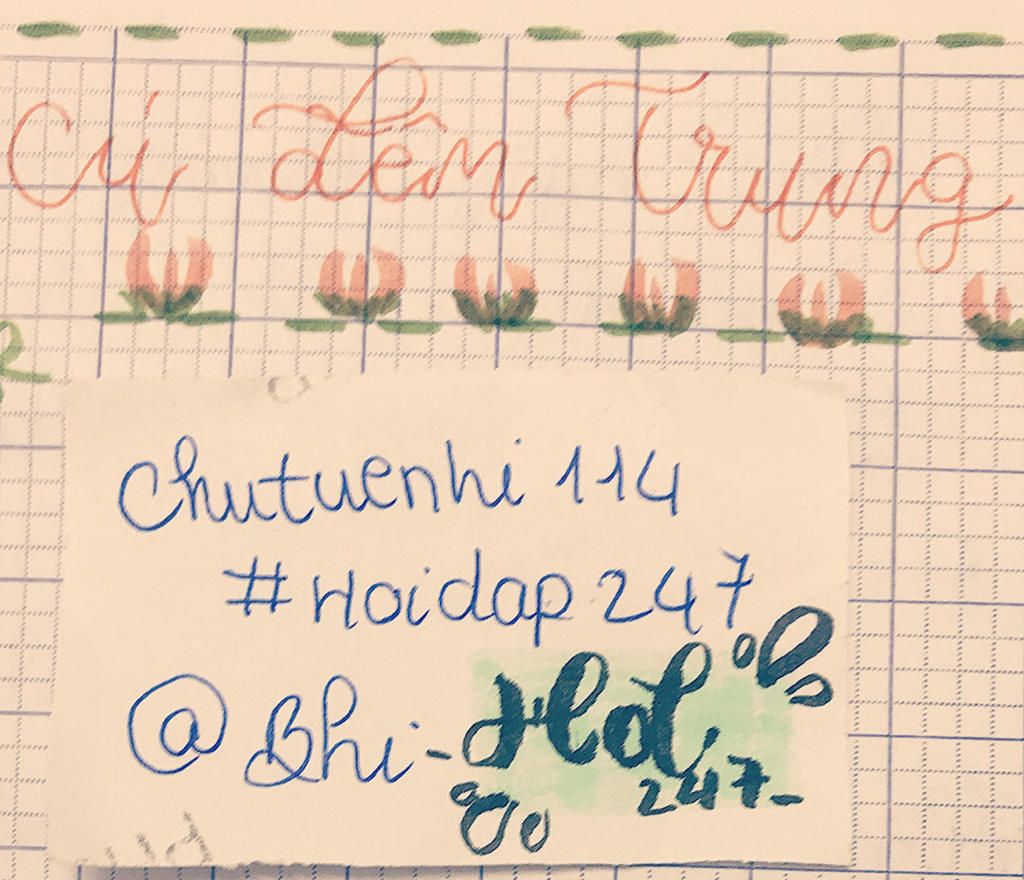 Cú đêm Trung
Chutuenhi 114
#Hoidap 247
@Bhi-
247-